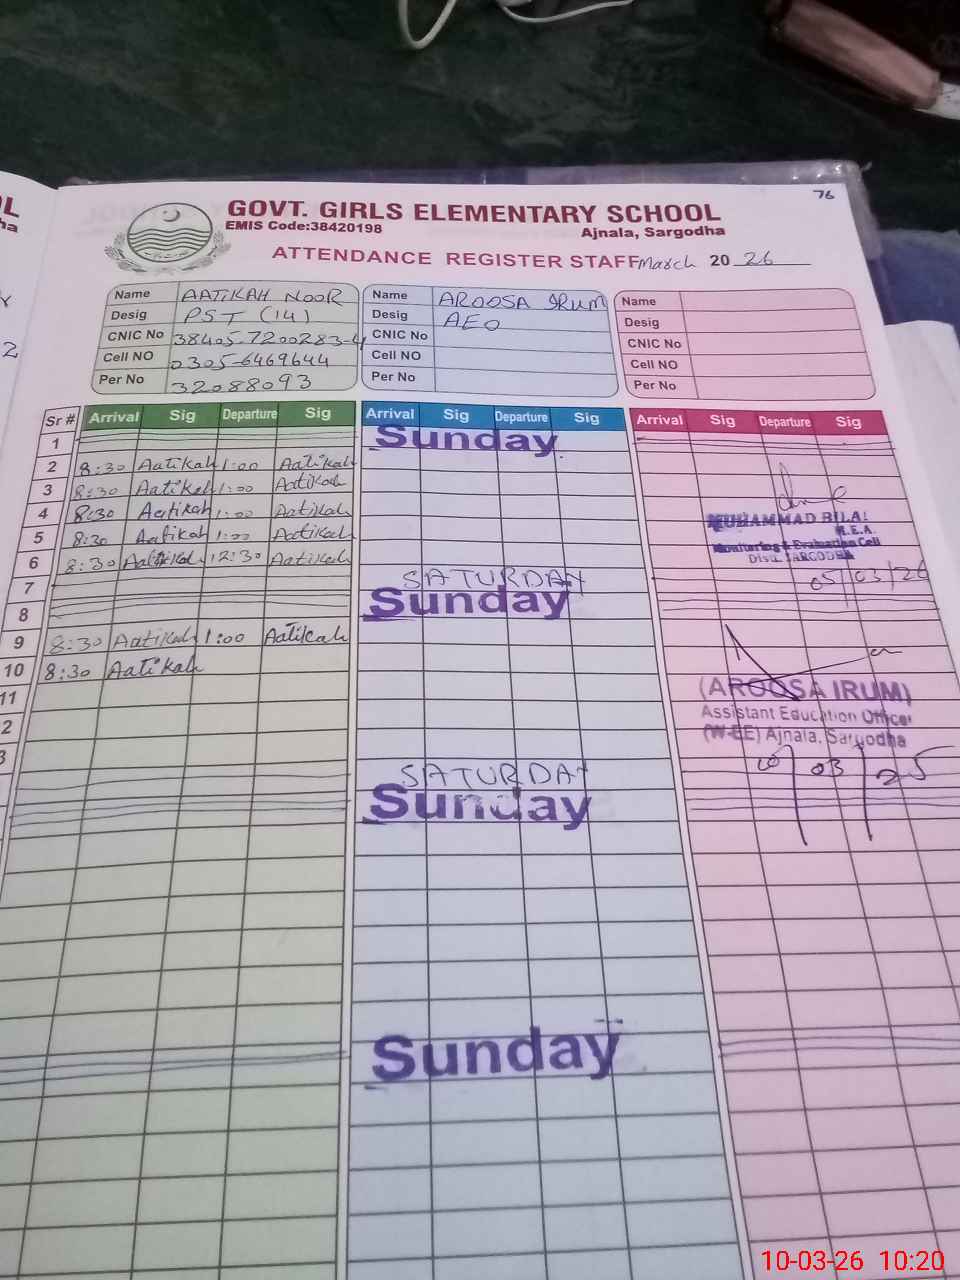 76
GOVT. GIRLS ELEMENTARY SCHOOL
EMIS Code:38420198 Ajnala, Sargodha
ATTENDANCE REGISTER STAFF March 20 26
Name AATIKAH NOOR
Desig PST (14)
CNIC No 38405-7200283-4
Cell NO 0305-6469644
Per No 32088093
Name AROOSA IRUM
Desig AEO
CNIC No
Cell NO
Per No
Name
Desig
CNIC No
Cell NO
Per No
Sr # Arrival Sig Departure Sig Arrival Sig Departure Sig Arrival Sig Departure Sig
1 Sunday
2 8:30 Aatikah 1:00 Aatikah
3 8:30 Aatikah 1:00 Aatikah
4 8:30 Aatikah 1:00 Aatikah
5 8:30 Aatikah 1:00 Aatikah
6 8:30 Aatikah 12:30 Aatikah
7 SATURDAY
8 Sunday
9 8:30 Aatikah 1:00 Aatikah
10 8:30 Aatikah
11
2
3
SATURDAY
Sunday
Sunday
MUHAMMAD BILAL
M.E.A.
Monitoring & Evaluation Cell
Distt. SARGODHA
05/03/26
(AROOSA IRUM)
Assistant Education Officer
(W-EE) Ajnala, Sargodha
10/03/25
10-03-26 10:20